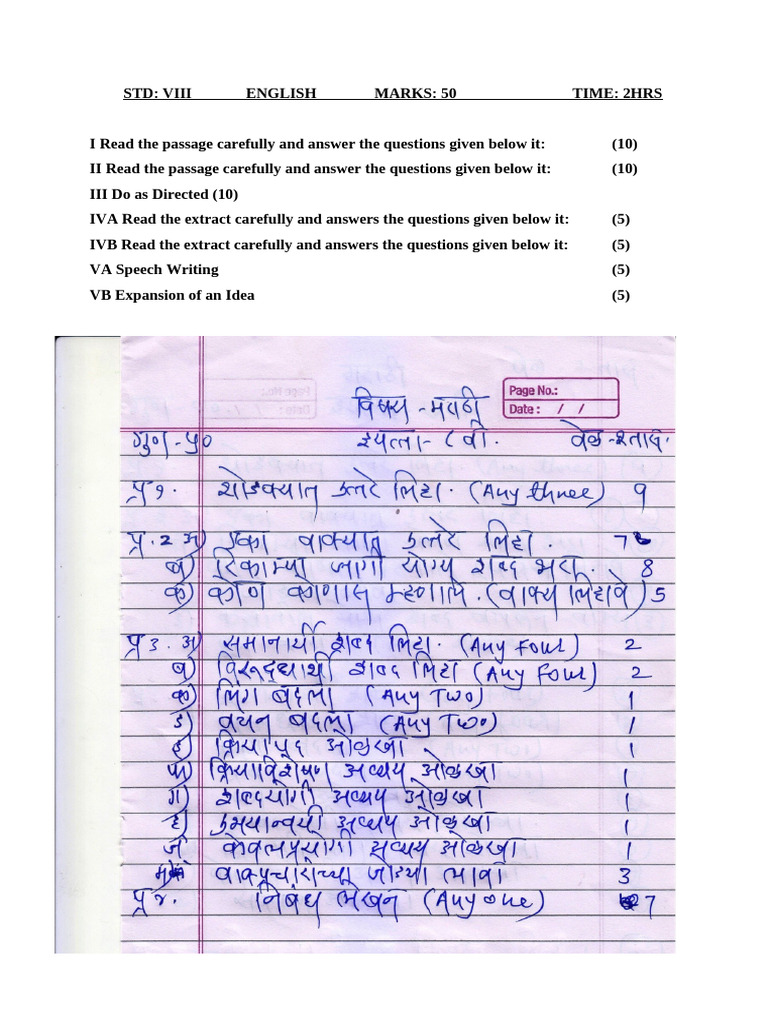 STD: VIII ENGLISH MARKS: 50 TIME: 2HRS
I Read the passage carefully and answer the questions given below it: (10)
II Read the passage carefully and answer the questions given below it: (10)
III Do as Directed (10)
IVA Read the extract carefully and answers the questions given below it: (5)
IVB Read the extract carefully and answers the questions given below it: (5)
VA Speech Writing (5)
VB Expansion of an Idea (5)
Page No.:
विषय - मराठी
Date : / /
गुण - ५० इयत्ता - ८ वी. वेळ - २ तास.
प्र १. थोडक्यात उत्तरे लिहा. (Any three) 9
प्र. 2 अ) एका वाक्यात उत्तरे लिहा. 7
ब) रिकाम्या जागी योग्य शब्द भरा. 8
क) कोण कोणास म्हणाले. (वाक्य लिहावे) 5
प्र 3. अ) समानार्थी शब्द लिहा. (Any Four) 2
ब) विरूद्धार्थी शब्द लिहा (Any Four) 2
क) लिंग बदला (Any Two) 1
ड) वचन बदला (Any Two) 1
इ) क्रियापद ओळखा 1
फ) क्रियाविशेषण अव्यय ओळखा 1
ग) शब्दयोगी अव्यय ओळखा 1
ह) उभयान्वयी अव्यय ओळखा 1
ज) केवलप्रयोगी अव्यय ओळखा 1
वाक्प्रचाराच्या जोड्या लावा 3
प्र ४. निबंध लेखन (Any one) 7